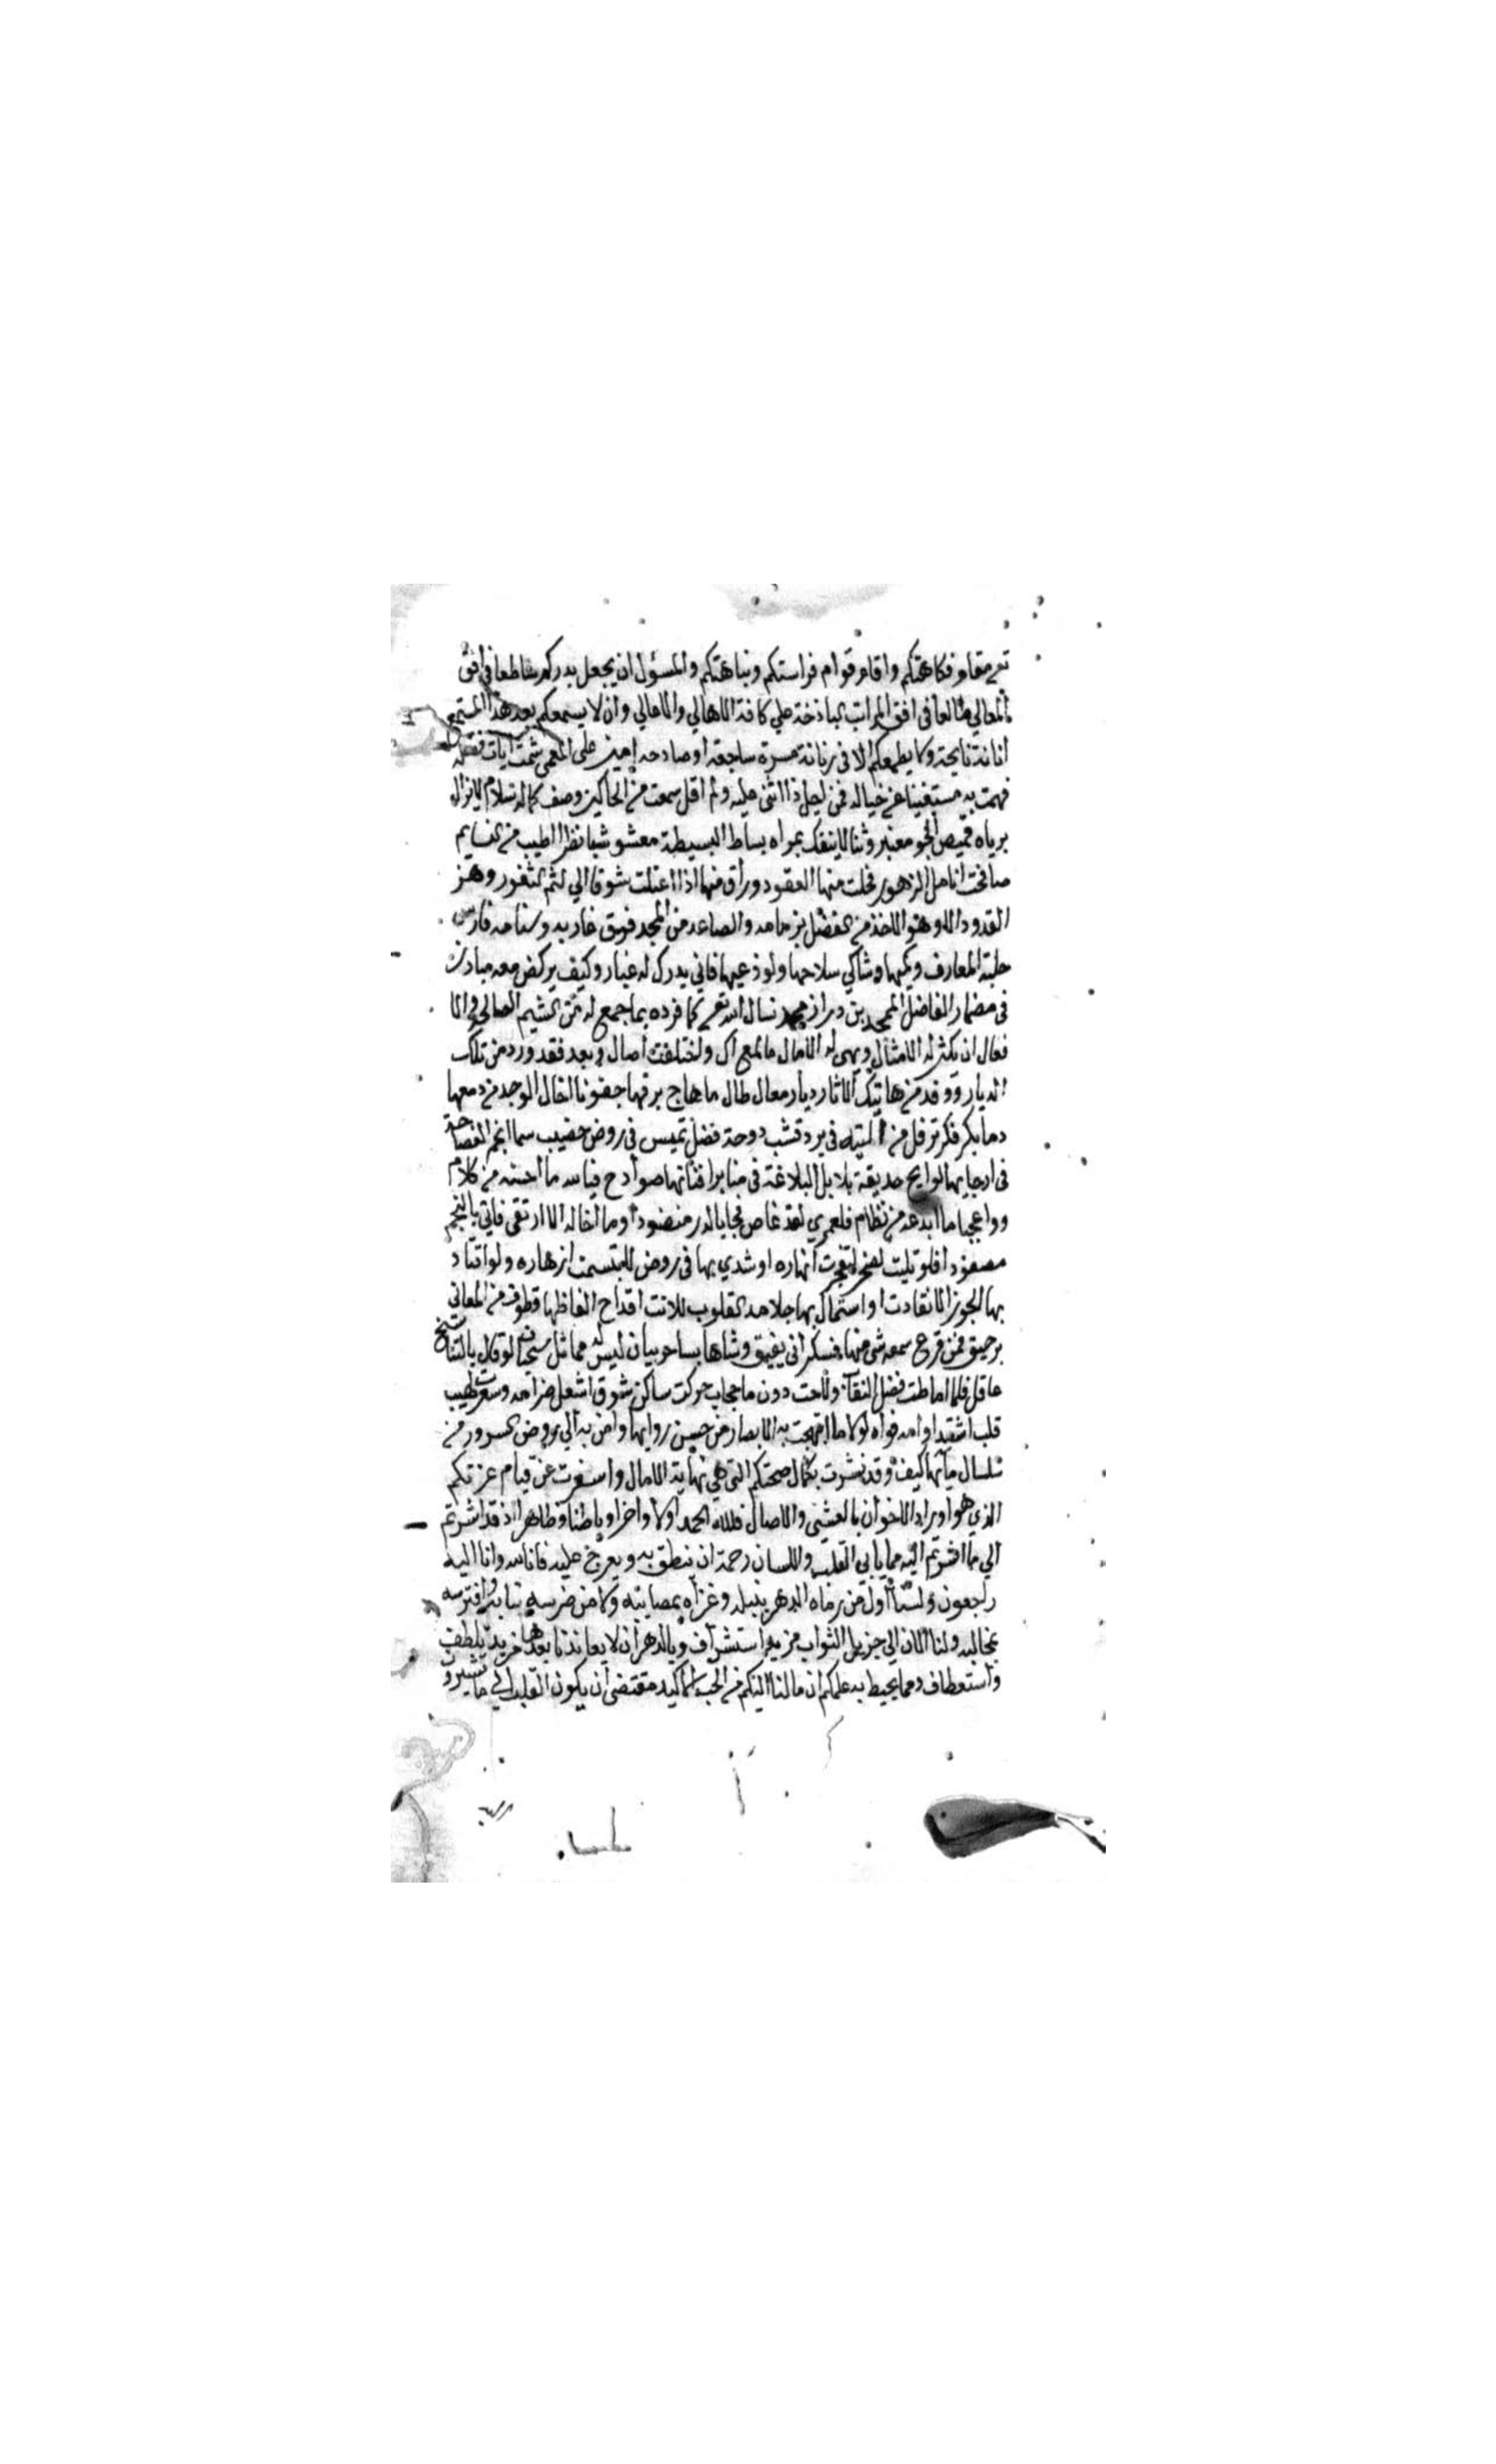 تعم مقام فكاهتكم واقام قوام فراستكم ونباهتكم والمسؤل ان يجعل بدركم ساطعا في افق
المعالي طالعا في افق المراتب الباذخة علي كافة الاهالي والاعالي وان لا يسمعكم بعد هذا المستمع
انانة نايحة ولا يطمعكم الا في رنانة مسرة ساجعة او صادحة امين على المعمى شمت ايات فضله
فهمت به مستغنيا عن خياله فمن ليحل ذا اثني عليه ولم اقل سمعت من الحاكين وصف كماله سلام لا يزال
برياه قميص الجو معنبر وثنا لا ينفك بمراه بساط البسيطة معشوشبا نظرا اطيب من نسايم
صافحت انامل الزهور فحلت منها العقود وراق فيها اذا اعتلت شوقا الي لثم الثغور وهز
القدود الا وهو الاخذ من الفضل بزمامه والصاعد من المجد فوق غاربه وسنامه فارس
حلبة المعارف وكميها وشاكي سلاحها ولوذعيها فاني يدرك له غبار وكيف يركض معه مبادر
في مضمار الفاضل الممجد بن دراز محمد نسال الله تعم كما فرده بما جمع له من الشيم العوالي والا
فعال ان يكثر له الامثال ويهي له الامال ما لمع ال واختلفت اصال وبعد فقد ورد من تلك
الديار ووفد من هاتيك الاثار ديار معال طال ما هاج برقها جفونا اخال الوجد من دمعها
دما بكر فكر ترفل من التيه في برد قشب دوحة فضل تميس في روض خصيب سما انجم الفصاحة
في ارجايها لوايح حديقة بلابل البلاغة في منابر افنانها صوادح فيا لله ما احسنه من كلام
وواعجبا ما ابدعه من نظام فلعمري لقد غاص فجا بالدر منضودا وما اخاله الا ارتقى فاتي بالنجم
مصفودا فلو تليت لصخر لتفجرت انهاره او شدي بها في روض لابتسمت ازهاره ولو اقتاد
بها الجوزا لانقادت او استمال بها جلامد القلوب للانت اقداح الفاظها قطوف من المعاني
برحيق فمن قرع سمعه شي منها فسكر اني يفيق وشاها بساحر بيان ليس له مماثل سحبان لو قال بالتناسخ
عاقل فلما اماطت فضل النقاب ولاحت دون ما حجاب حركت ساكن شوق اشعل ضرامه وسعرت لهيب
قلب اشتد اوامه فواه لولا ما ابتهجت به الابصار من حسن روايها وامن به الي روض السرور من
سلسال مايها كيف وقد بشرت بكمال صحتكم التي هي نهاية الامال واسفرت عن قيام عزتكم
الذي هو اوراد الاخوان بالعشي والاصال فلله الحمد اولا واخرا وباطنا وظاهرا اذ قد اشرتم
الي ما اشرتم اليه مما يابي القلب واللسان رحمة ان ينطق به ويعرج عليه فانا لله وانا اليه
راجعون ولسنا اول من رماه الدهر بنبله وغزاه بمصايبه ولا من ضرسه بنابه وافترسه
بمخالبه ولنا الان الي جزيل الثواب مزيد استشراف وبالدهر ان لا يعاندنا بعدها مزيد تلطف
واستعطاف ومما يحيط به علمكم ان ما لنا اليكم من الحب الاكيد مقتضي ان يكون القلب الي ما تشيرون